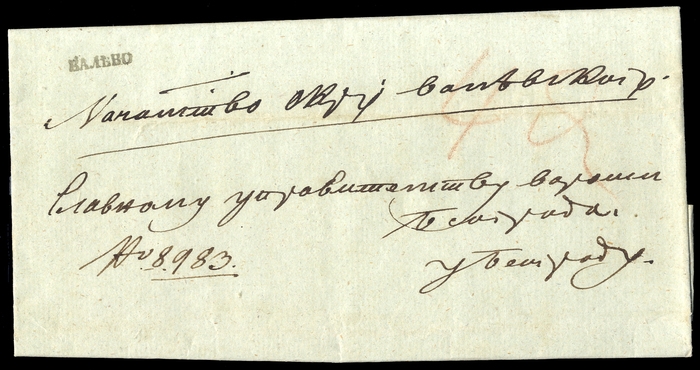 ВАЛЬВО
Началство окр: валѣвског.
Славному управителству вароши
Београда.
No 8983.
у Београду.